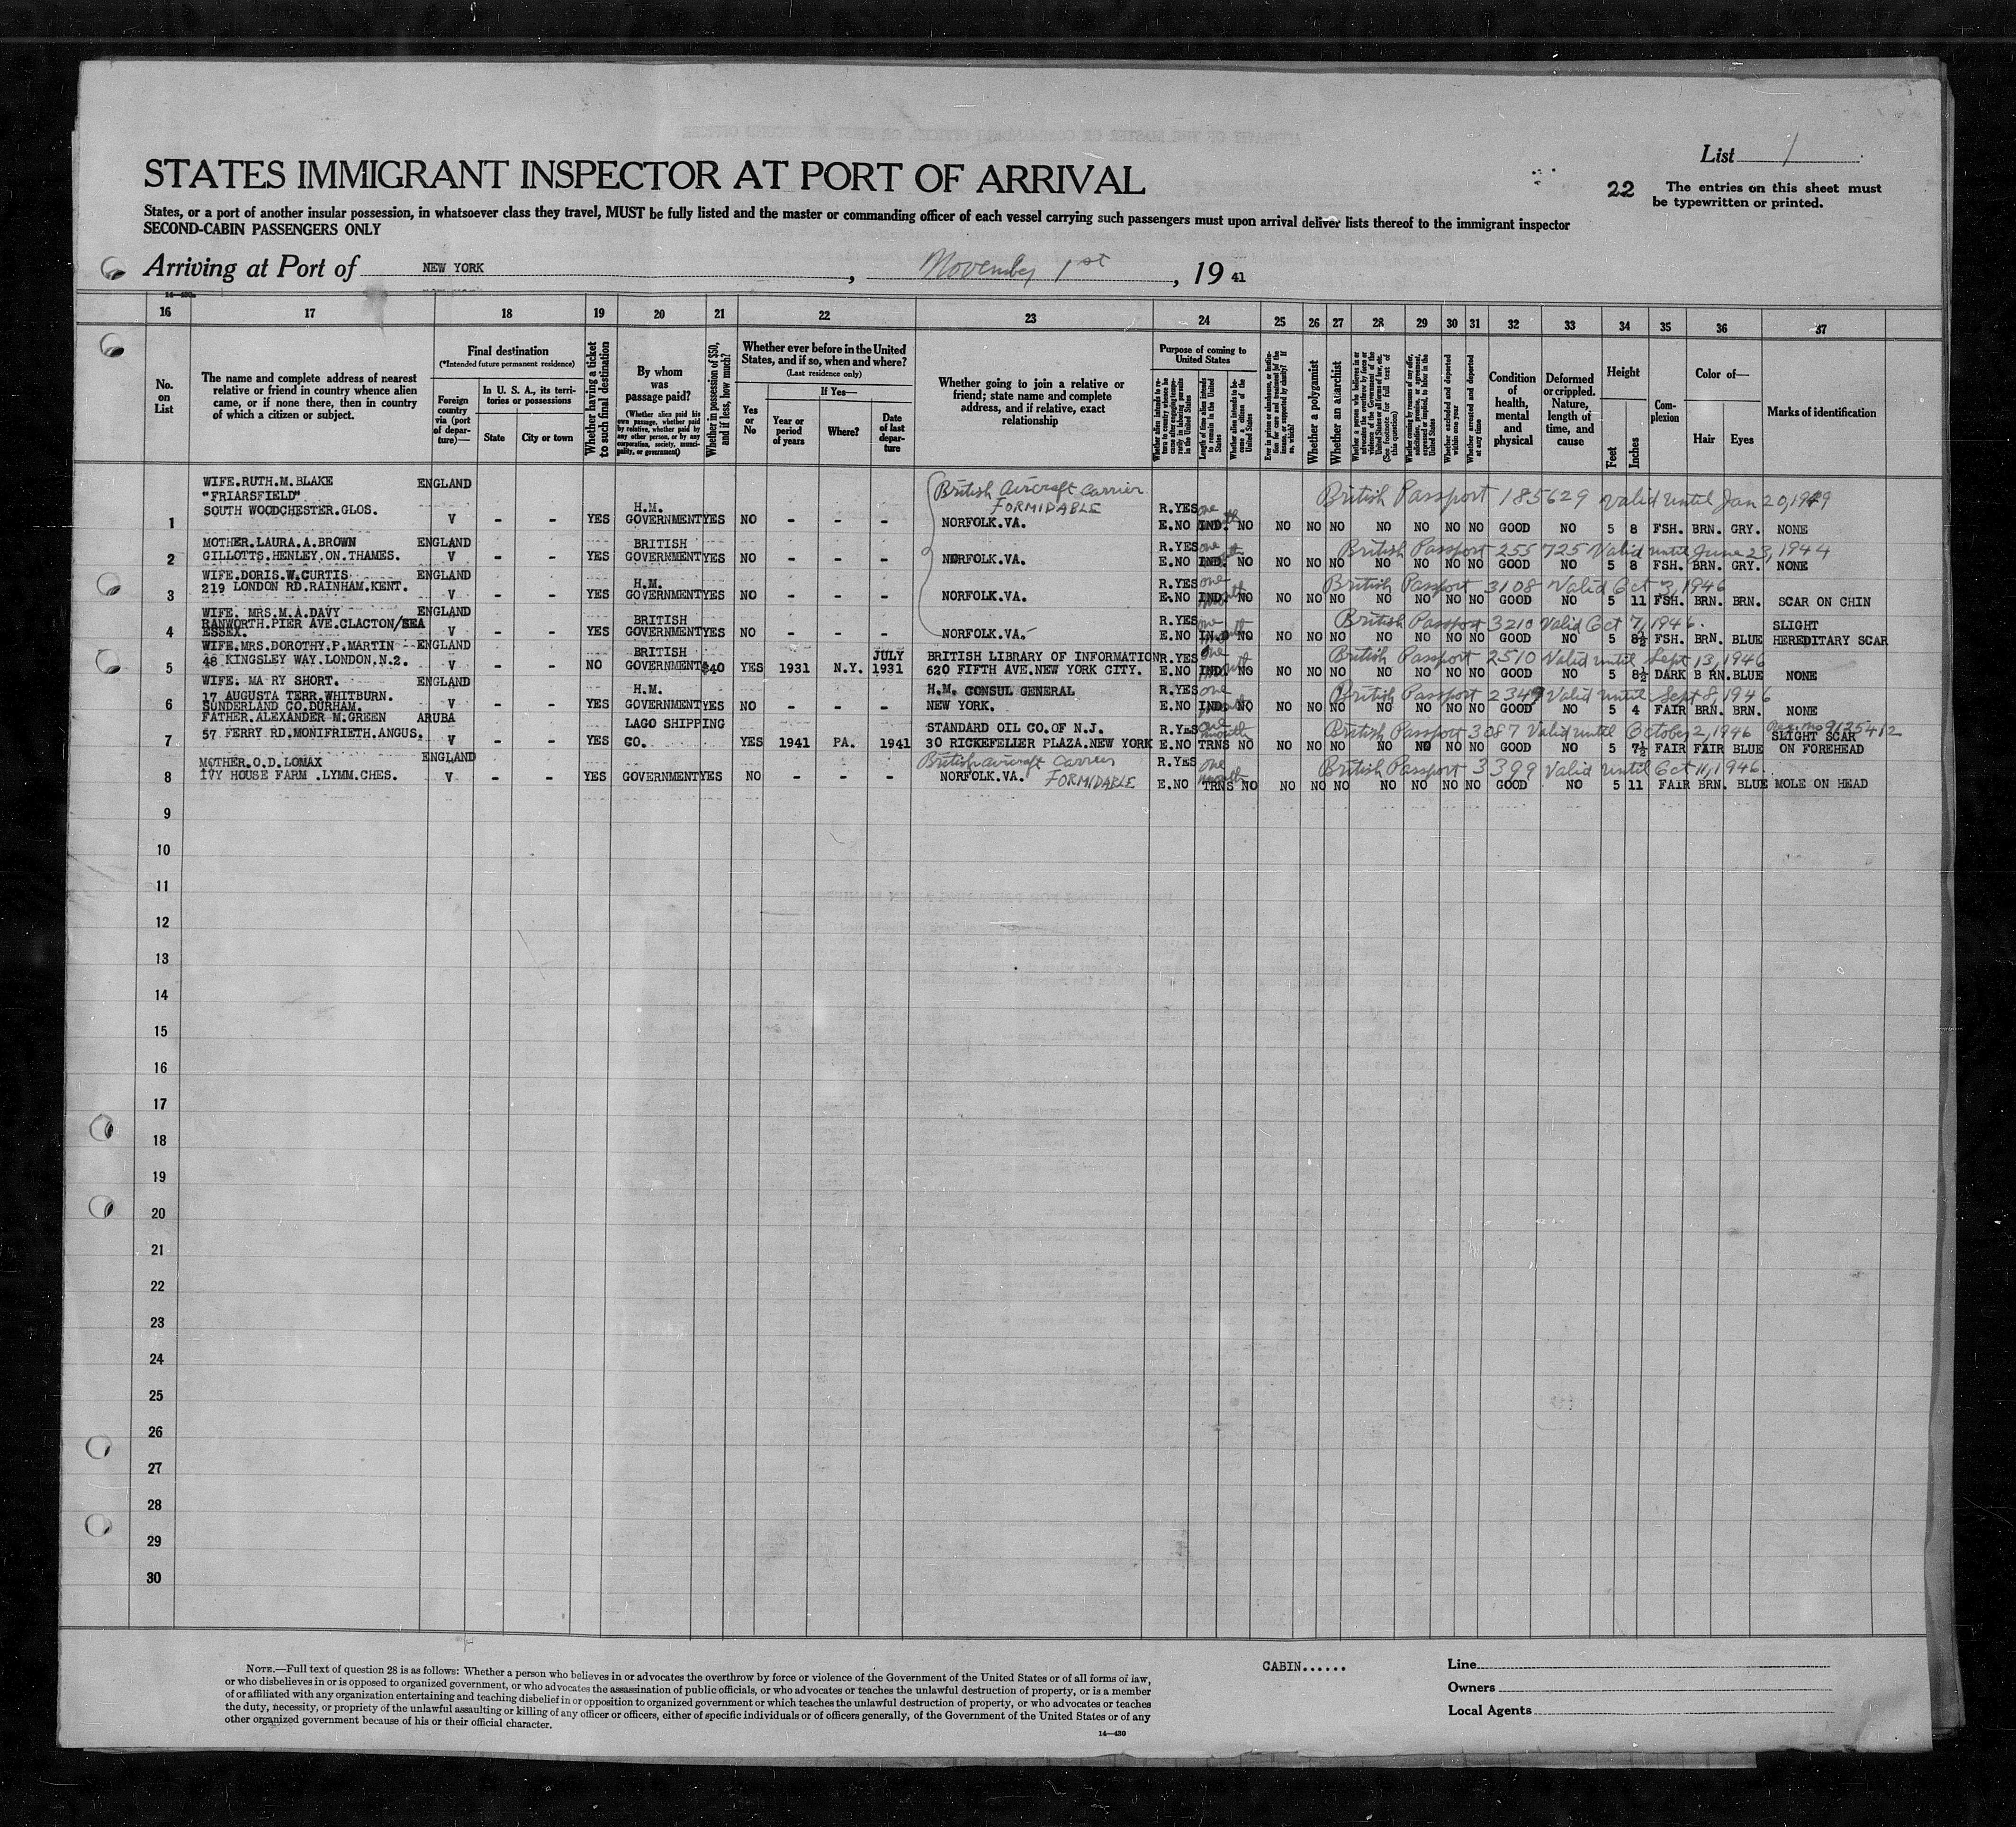 List 1
STATES IMMIGRANT INSPECTOR AT PORT OF ARRIVAL
22 The entries on this sheet must
be typewritten or printed.
States, or a port of another insular possession, in whatsoever class they travel, MUST be fully listed and the master or commanding officer of each vessel carrying such passengers must upon arrival deliver lists thereof to the immigrant inspector
SECOND-CABIN PASSENGERS ONLY
Arriving at Port of NEW YORK, November 1st, 19 41
16 17 18 19 20 21 22 23 24 25 26 27 28 29 30 31 32 33 34 35 36 37
No. on List
The name and complete address of nearest relative or friend in country whence alien came, or if none there, then in country of which a citizen or subject.
Final destination
(*Intended future permanent residence)
Foreign country via (port of departure)—
In U. S. A., its territories or possessions
State
City or town
Whether having a ticket to such final destination
By whom was passage paid?
(Whether alien paid his own passage, whether paid by relative, whether paid by any other person, or by any corporation, society, municipality, or government)
Whether in possession of $50, and if less, how much?
Whether ever before in the United States, and if so, when and where?
(Last residence only)
Yes or No
If Yes—
Year or period of years
Where?
Date of last departure
Whether going to join a relative or friend; state name and complete address, and if relative, exact relationship
Purpose of coming to United States
Length of time alien intends to remain in the United States
Whether alien intends to become a citizen of the United States
Whether a polygamist
Whether an anarchist
Whether excluded and deported within one year
Whether arrested and deported at any time
Condition of health, mental and physical
Deformed or crippled. Nature, length of time, and cause
Height
Feet
Inches
Complexion
Color of—
Hair
Eyes
Marks of identification
WIFE.RUTH.M.BLAKE ENGLAND British Aircraft Carrier British Passport 185629 Valid until Jan 20, 1949
"FRIARSFIELD" H.M. FORMIDABLE
SOUTH WOODCHESTER.GLOS. R.YES one
1 V - - YES GOVERNMENT YES NO - - - NORFOLK.VA. E.NO IND. NO NO NO NO NO NO NO NO GOOD NO 5 8 FSH. BRN. GRY. NONE
MOTHER.LAURA.A.BROWN ENGLAND BRITISH R.YES one British Passport 255725 Valid until June 23, 1944
2 GILLOTTS.HENLEY.ON.THAMES. V - - YES GOVERNMENT YES NO - - - NORFOLK.VA. E.NO IND. NO NO NO NO NO NO NO NO GOOD NO 5 8 FSH. BRN. GRY. NONE
WIFE.DORIS.W.CURTIS ENGLAND H.M. R.YES one British Passport 3108 Valid Oct 3, 1946
3 219 LONDON RD.RAINHAM.KENT. V - - YES GOVERNMENT YES NO - - - NORFOLK.VA. E.NO IND. NO NO NO NO NO NO NO NO GOOD NO 5 11 FSH. BRN. BRN. SCAR ON CHIN
WIFE. MRS.M.A.DAVY ENGLAND BRITISH R.YES one British Passport 3210 Valid Oct 7, 1946.
RANWORTH.PIER AVE.CLACTON/SEA SLIGHT
4 ESSEX. V - - YES GOVERNMENT YES NO - - - NORFOLK.VA. E.NO IN.D NO NO NO NO NO NO NO NO GOOD NO 5 8½ FSH. BRN. BLUE HEREDITARY SCAR
WIFE.MRS.DOROTHY.P.MARTIN ENGLAND BRITISH JULY BRITISH LIBRARY OF INFORMATION R.YES one British Passport 2510 Valid until Sept 13, 1946
5 48 KINGSLEY WAY.LONDON.N.2. V - - NO GOVERNMENT $40 YES 1931 N.Y. 1931 620 FIFTH AVE.NEW YORK CITY. E.NO IND. NO NO NO NO NO NO NO NO GOOD NO 5 8½ DARK B RN. BLUE NONE
WIFE. MA RY SHORT. ENGLAND H.M. H.M. CONSUL GENERAL R.YES one British Passport 2349 Valid until Sept 8, 1946
17 AUGUSTA TERR.WHITBURN.
6 SUNDERLAND CO.DURHAM. V - - YES GOVERNMENT YES NO - - - NEW YORK. E.NO IND. NO NO NO NO NO NO NO NO GOOD NO 5 4 FAIR BRN. BRN. NONE
FATHER.ALEXANDER M.GREEN ARUBA LAGO SHIPPING STANDARD OIL CO.OF N.J. R.YES one month British Passport 3087 Valid until October 2, 1946 9125412
SLIGHT SCAR
7 57 FERRY RD.MONIFRIETH.ANGUS. V - - YES CO. YES 1941 PA. 1941 30 RICKEFELLER PLAZA.NEW YORK E.NO TRNS NO NO NO NO NO NO NO NO GOOD NO 5 7½ FAIR FAIR BLUE ON FOREHEAD
MOTHER.O.D.LOMAX ENGLAND British aircraft Carrier R.YES one month British Passport 3399 Valid until Oct 11, 1946.
8 IVY HOUSE FARM .LYMM.CHES. V - - YES GOVERNMENT YES NO - - - NORFOLK.VA. FORMIDABLE E.NO TRNS NO NO NO NO NO NO NO NO GOOD NO 5 11 FAIR BRN. BLUE MOLE ON HEAD
9
10
11
12
13
14
15
16
17
18
19
20
21
22
23
24
25
26
27
28
29
30
NOTE.—Full text of question 28 is as follows: Whether a person who believes in or advocates the overthrow by force or violence of the Government of the United States or of all forms of law,
or who disbelieves in or is opposed to organized government, or who advocates the assassination of public officials, or who advocates or teaches the unlawful destruction of property, or is a member
of or affiliated with any organization entertaining and teaching disbelief in or opposition to organized government or which teaches the unlawful destruction of property, or who advocates or teaches
the duty, necessity, or propriety of the unlawful assaulting or killing of any officer or officers, either of specific individuals or of officers generally, of the Government of the United States or of any
other organized government because of his or their official character.
14—430
CABIN......
Line
Owners
Local Agents